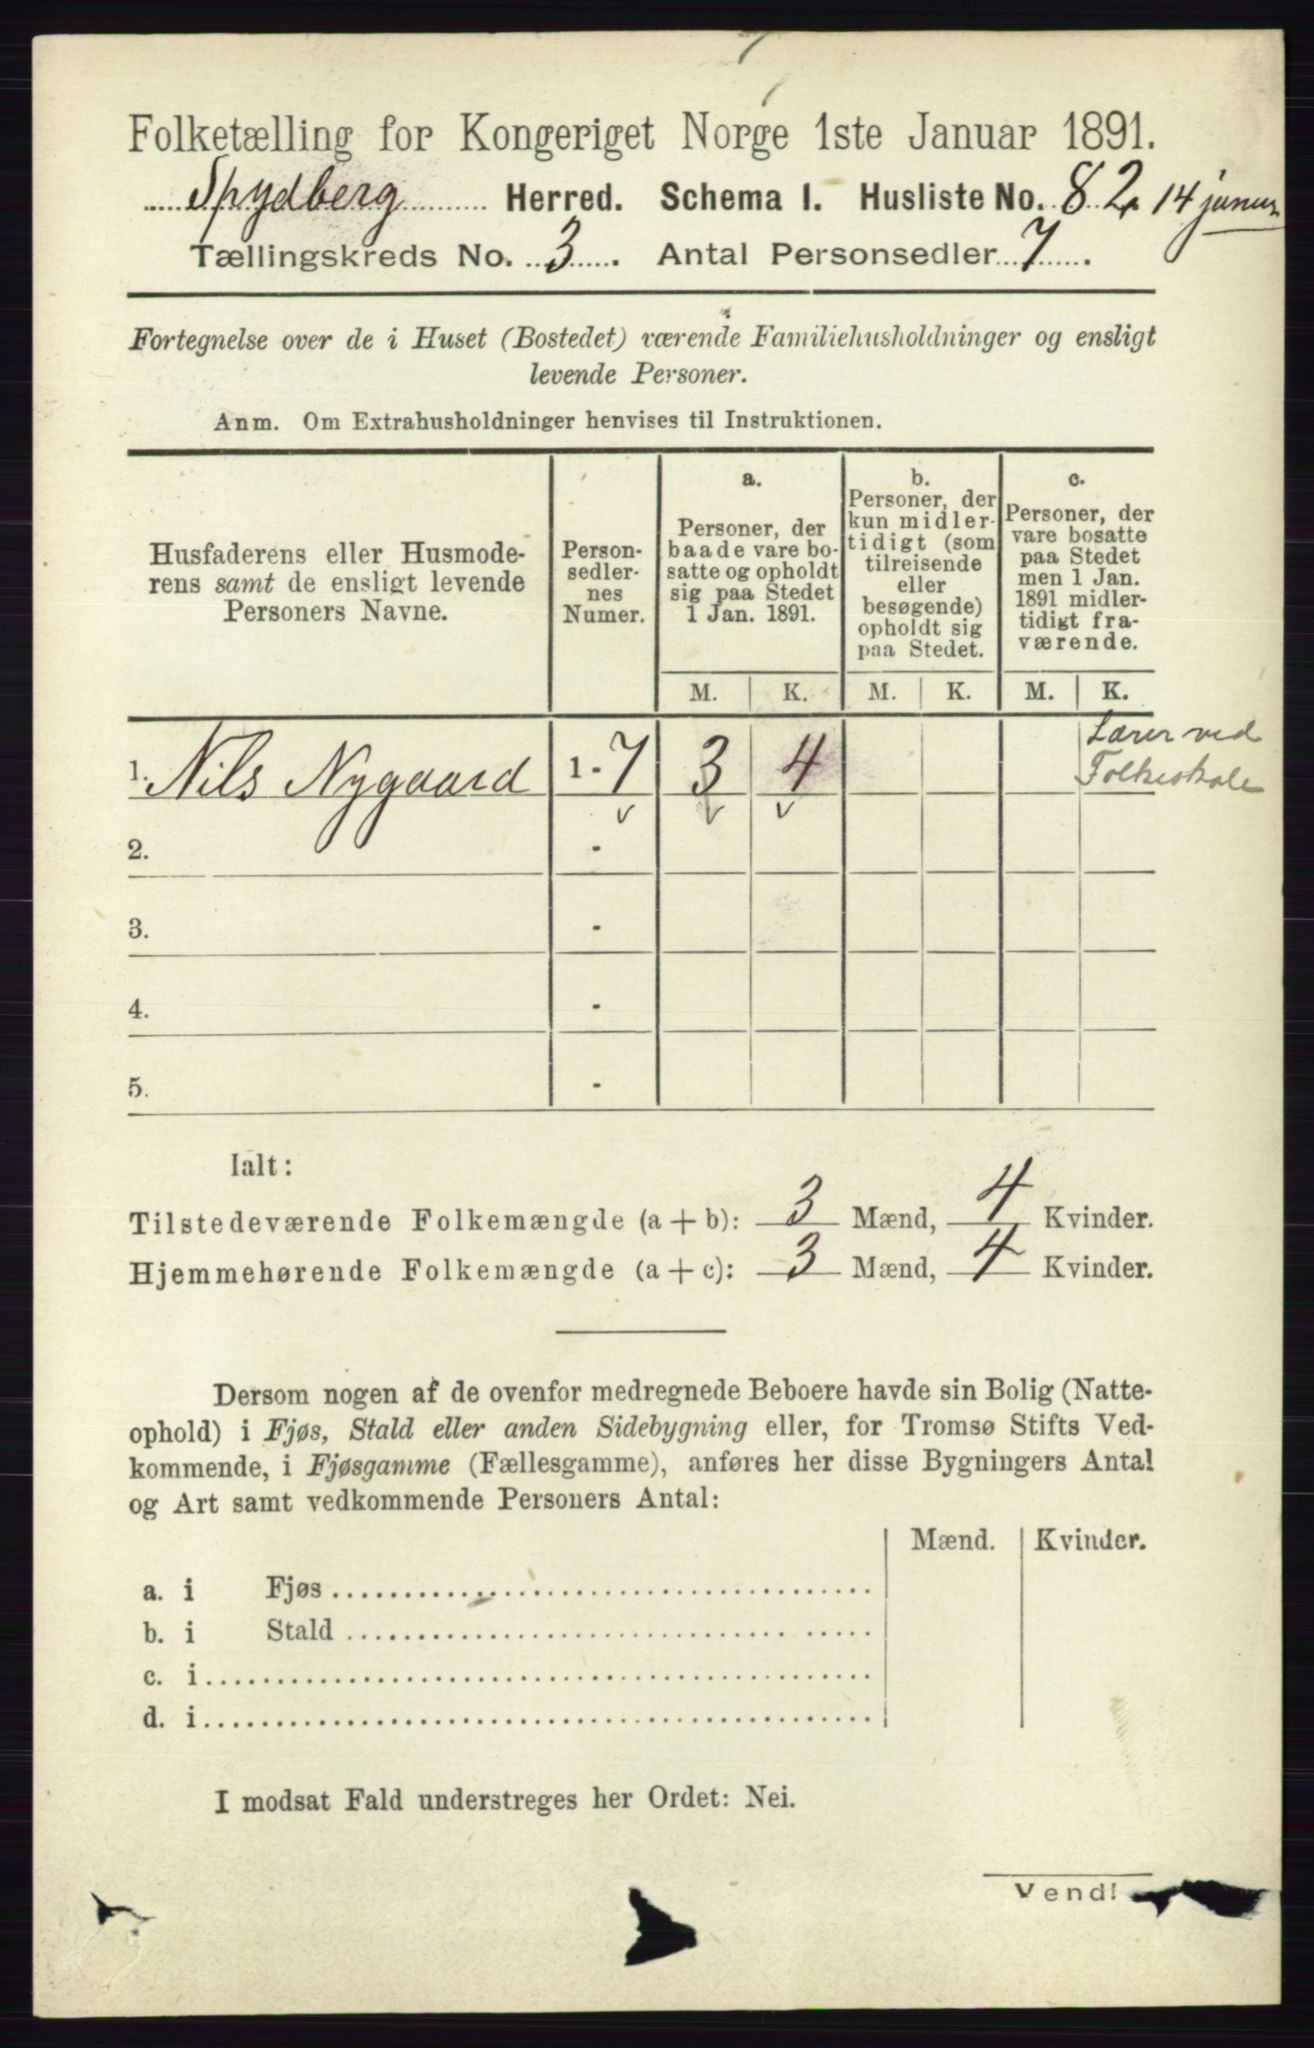 Folketælling for Kongeriget Norge 1ste Januar 1891.
Spydberg Herred. Schema I. Husliste No. 82. 14 januar
Tællingskreds No. 3. Antal Personsedler 7.
Fortegnelse over de i Huset (Bostedet) værende Familiehusholdninger og ensligt
levende Personer.
Anm. Om Extrahusholdninger henvises til Instruktionen.
Husfaderens eller Husmode-
rens samt de ensligt levende
Personers Navne.
Person-
sedler-
nes
Numer.
a.
Personer, der
baade vare bo-
satte og opholdt
sig paa Stedet
1 Jan. 1891.
b.
Personer, der
kun midler-
tidigt (som
tilreisende
eller
besøgende)
opholdt sig
paa Stedet.
c.
Personer, der
vare bosatte
paa Stedet
men 1 Jan.
1891 midler-
tidigt fra-
værende.
M. K. M. K. M. K.
1. Nils Nygaard 1-7 3 4
Lærer ved
Folkeskole
2. -
3. -
4. -
5. -
Ialt:
Tilstedeværende Folkemængde (a + b): 3 Mænd, 4 Kvinder.
Hjemmehørende Folkemængde (a + c): 3 Mænd, 4 Kvinder.
Dersom nogen af de ovenfor medregnede Beboere havde sin Bolig (Natte-
ophold) i Fjøs, Stald eller anden Sidebygning eller, for Tromsø Stifts Ved-
kommende, i Fjøsgamme (Fællesgamme), anføres her disse Bygningers Antal
og Art samt vedkommende Personers Antal:
Mænd. Kvinder.
a. i Fjøs
b. i Stald
c. i
d. i
I modsat Fald understreges her Ordet: Nei.
Vend!